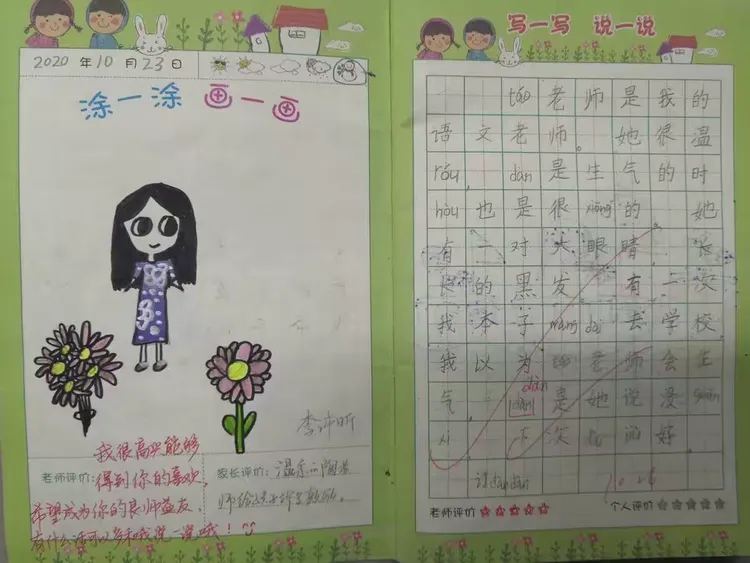 2020 年 10 月 23 日
涂一涂 画一画
我很高兴能够
老师评价: 得到你的喜欢,
希望成为你的良师益友,
家长评价: 温柔的陶老
写一写 说一说
táo 老师是我的
语文老师。她很温
róu, dàn 是生气的时
hòu 也是很 xiōng 的 她
有一对大眼睛, 长
长的黑发。有一次
我本子 wàng dài 去学校,
我以为 táo 老师会生
气, dàn 是她说没 guān
xi 下次 说好
dàn
10.26
老师评价
个人评价